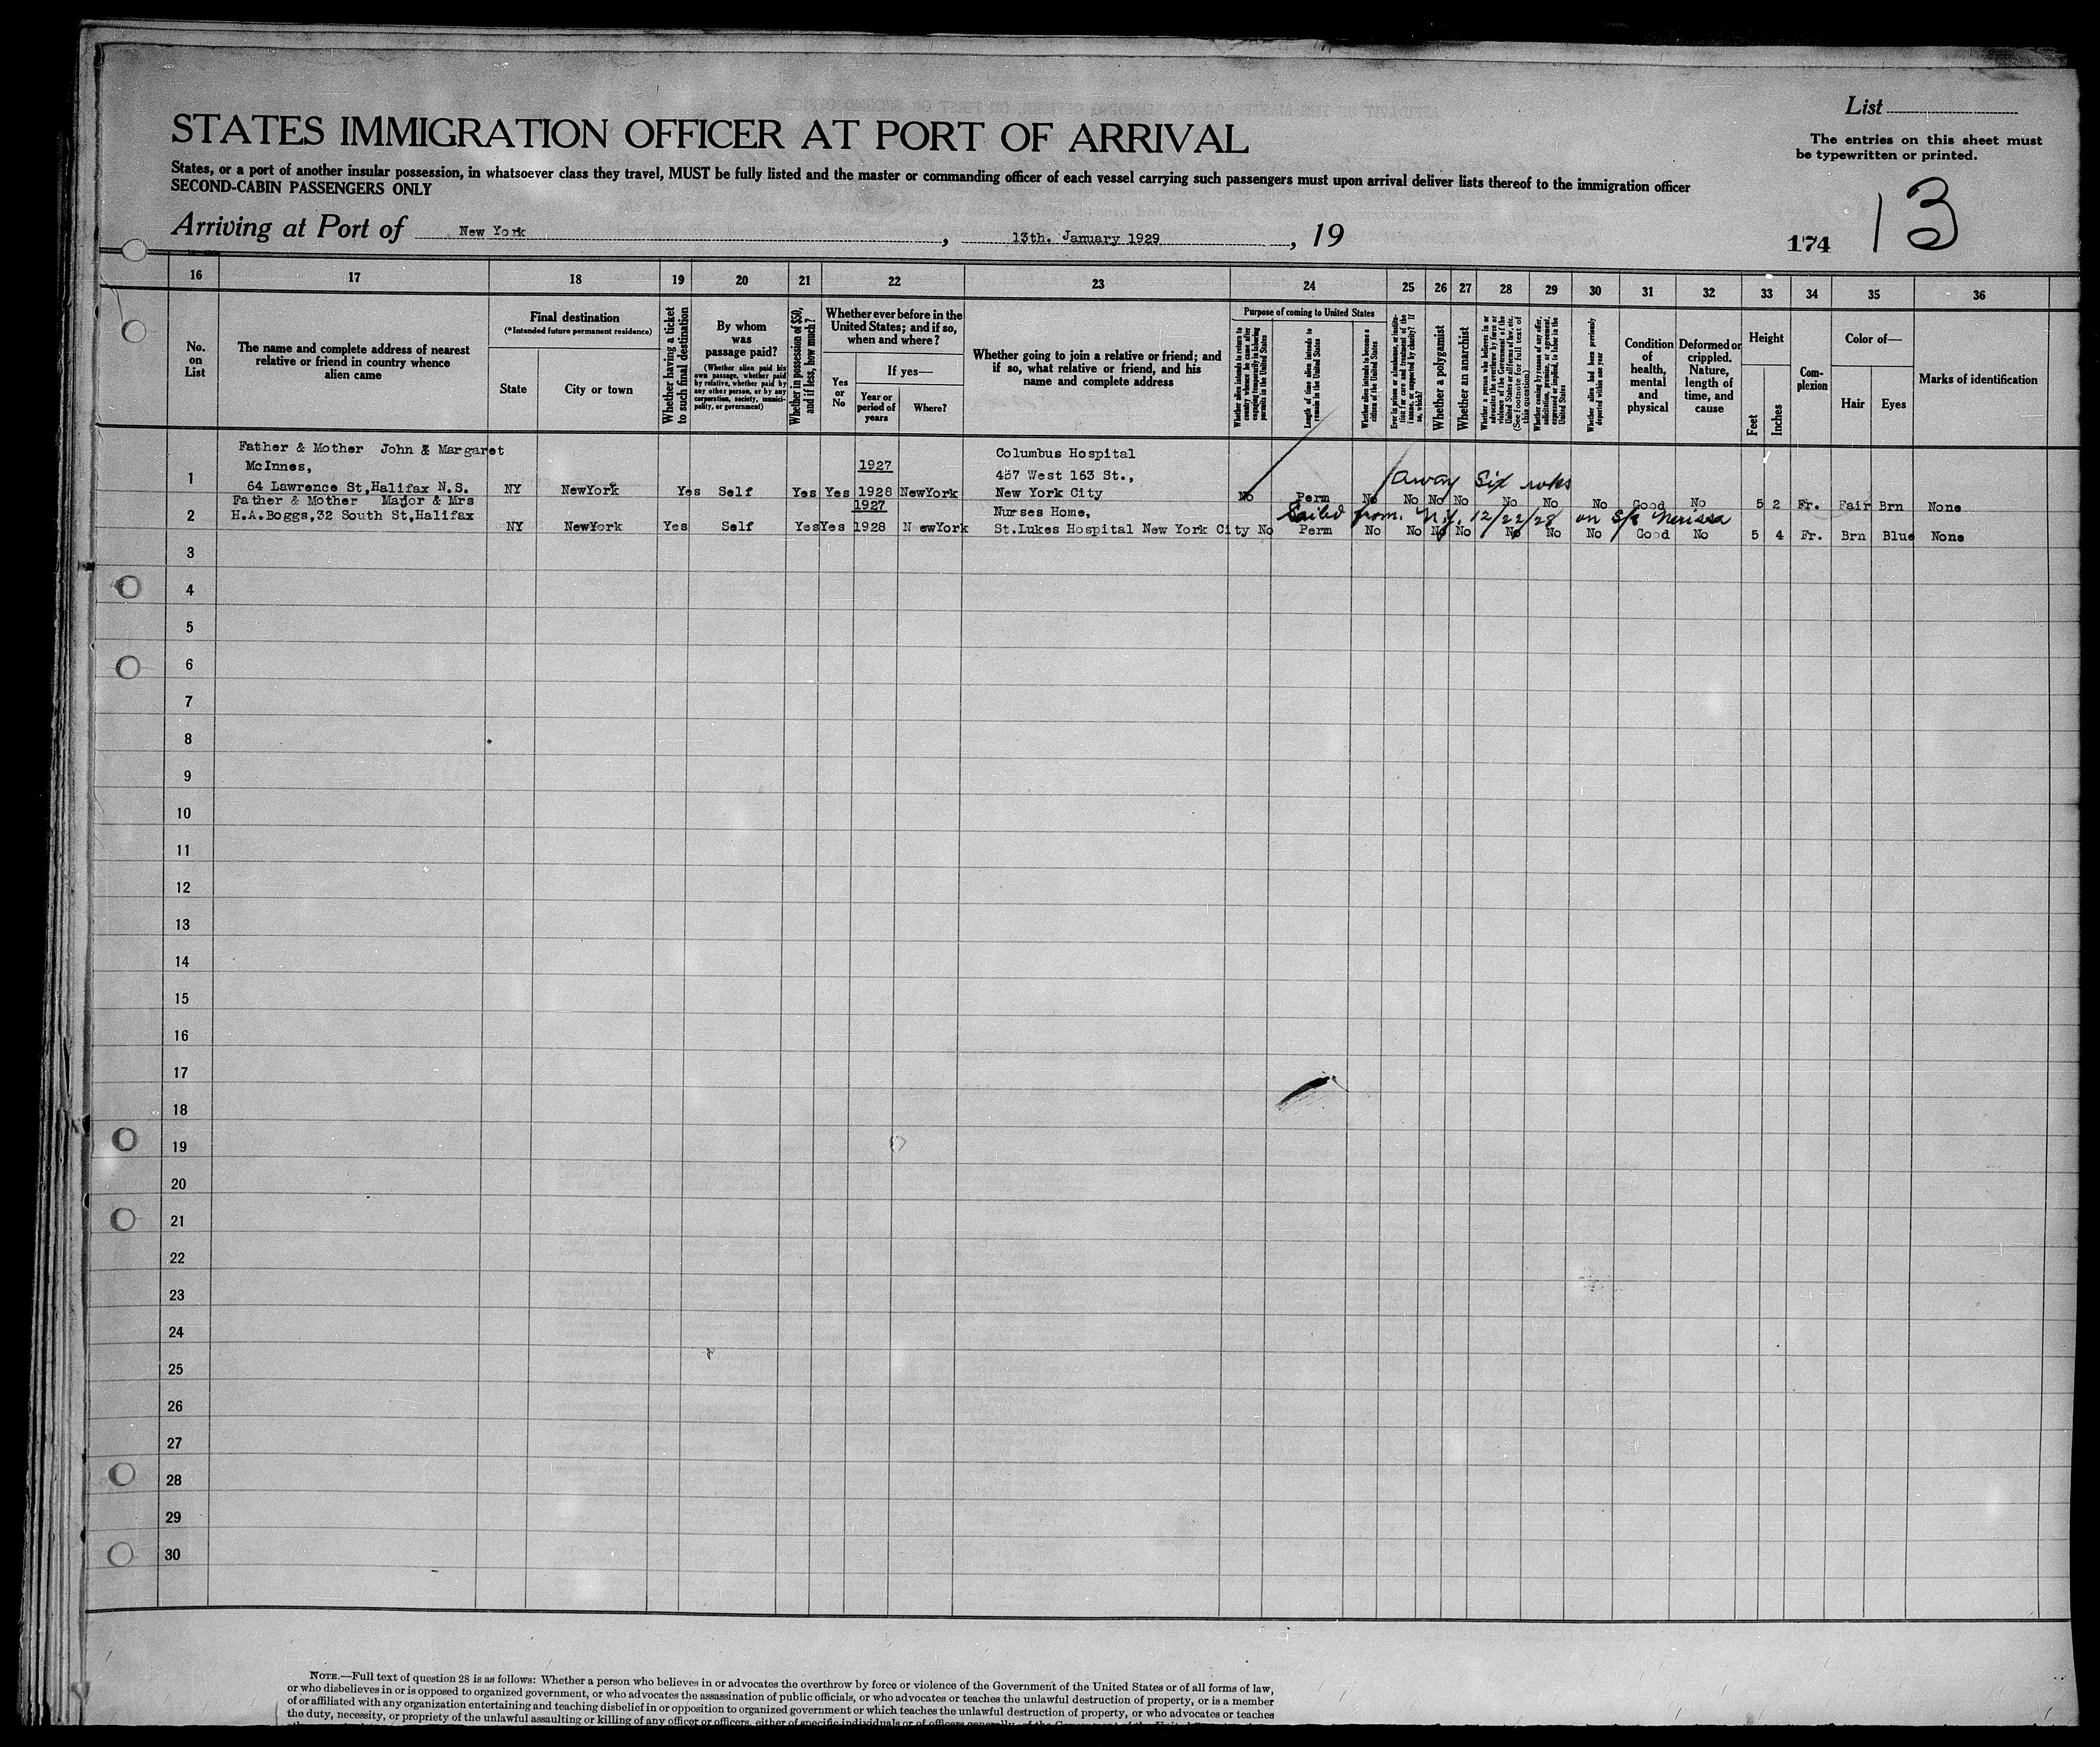 List
STATES IMMIGRATION OFFICER AT PORT OF ARRIVAL
The entries on this sheet must
be typewritten or printed.
States, or a port of another insular possession, in whatsoever class they travel, MUST be fully listed and the master or commanding officer of each vessel carrying such passengers must upon arrival deliver lists thereof to the immigration officer
SECOND-CABIN PASSENGERS ONLY
Arriving at Port of New York, 13th. January 1929, 19
174 13
16 17 18 19 20 21 22 23 24 25 26 27 28 29 30 31 32 33 34 35 36
No. on List
The name and complete address of nearest relative or friend in country whence alien came
Final destination
(*Intended future permanent residence)
State
City or town
Whether having a ticket to such final destination
By whom was passage paid?
(Whether alien paid his own passage, whether paid by relative, whether paid by any other person, or by any corporation, society, municipality, or government)
Whether in possession of $50, and if less, how much?
Whether ever before in the United States; and if so, when and where?
Yes or No
If yes—
Year or period of years
Where?
Whether going to join a relative or friend; and if so, what relative or friend, and his name and complete address
Purpose of coming to United States
Whether alien intends to return to country whence he came after engaging temporarily in laboring pursuits in the United States
Length of time alien intends to remain in the United States
Whether alien intends to become a citizen of the United States
Ever in prison or almshouse, or institution for care and treatment of the insane, or supported by charity? If so, which?
Whether a polygamist
Whether an anarchist
Whether a person who believes in or advocates the overthrow by force or violence of the Government of the United States or all forms of law, etc. (See footnote for full text of this question)
Whether coming by reason of any offer, solicitation, promise, or agreement, expressed or implied, to labor in the United States
Whether alien had been previously deported within one year
Condition of health, mental and physical
Deformed or crippled. Nature, length of time, and cause
Height
Feet
Inches
Complexion
Color of—
Hair
Eyes
Marks of identification
Father & Mother John & Margaret
McInnes, 1927 Columbus Hospital
1 457 West 163 St., Away six wks
64 Lawrence St,Halifax N.S. NY NewYork Yes Self Yes Yes 1928 NewYork New York City No Perm No No No No No No No Good No 5 2 Fr. Fair Brn None
Father & Mother Major & Mrs 1927 Nurses Home, Sailed from N.Y. 12/22/28 on S/S Nerissa
2 H.A.Boggs,32 South St,Halifax
NY NewYork Yes Self Yes Yes 1928 NewYork St.Lukes Hospital New York City No Perm No No No No No No No Good No 5 4 Fr. Brn Blue None
3
4
5
6
7
8
9
10
11
12
13
14
15
16
17
18
19
20
21
22
23
24
25
26
27
28
29
30
NOTE.—Full text of question 28 is as follows: Whether a person who believes in or advocates the overthrow by force or violence of the Government of the United States or of all forms of law,
or who disbelieves in or is opposed to organized government, or who advocates the assassination of public officials, or who advocates or teaches the unlawful destruction of property, or is a member
of or affiliated with any organization entertaining and teaching disbelief in or opposition to organized government or which teaches the unlawful destruction of property, or who advocates or teaches
the duty, necessity, or propriety of the unlawful assaulting or killing of any officer or officers, either of specific individuals or of officers generally, of the Government of the United